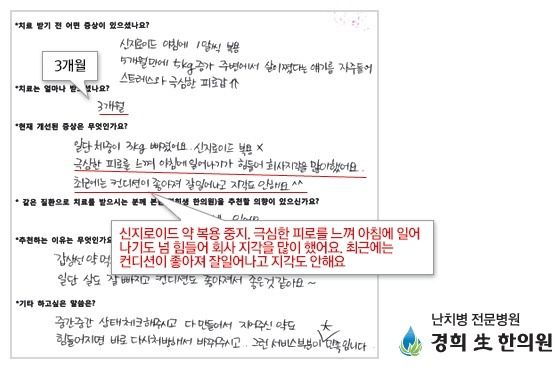 *치료 받기 전 어떤 증상이 있으셨나요?
신지로이드 아침에 1알씩 복용
5개월만에 5kg증가 주변에서 살이쪘다는 얘기를 자주들어
스트레스와 극심한 피로감⇧
3개월
*치료는 얼마나 받으셨나요?
3개월
*현재 개선된 증상은 무엇인가요?
일단 체중이 3kg 빠졌어요.. 신지로이드 복용 X
극심한 피로를 느껴 아침에 일어나기가 힘들어 회사지각을 많이했어요..
최근에는 컨디션이 좋아져 잘일어나고 지각도 안해요 ^^
* 같은 질환으로 치료를 받으시는 분께 본 한의원)을 추천할 의향이 있으신가요?
신지로이드 약 복용 중지. 극심한 피로를 느껴 아침에 일어
나기도 넘 힘들어 회사 지각을 많이 했어요. 최근에는
컨디션이 좋아져 잘일어나고 지각도 안해요
*추천하는 이유는 무엇인가
갑상선 약 먹
일단 살도 잘 빠지고 컨디션도 좋아져서 좋은것같아요~
*기타 하고싶은 말씀은?
중간중간 상태체크해주시고 다 만들어서 지어주신 약도
힘들어지면 바로 다시처방해서 바꿔주시고.. 그런 서비스부분이 만족입니다
난치병 전문병원
경희 生 한의원